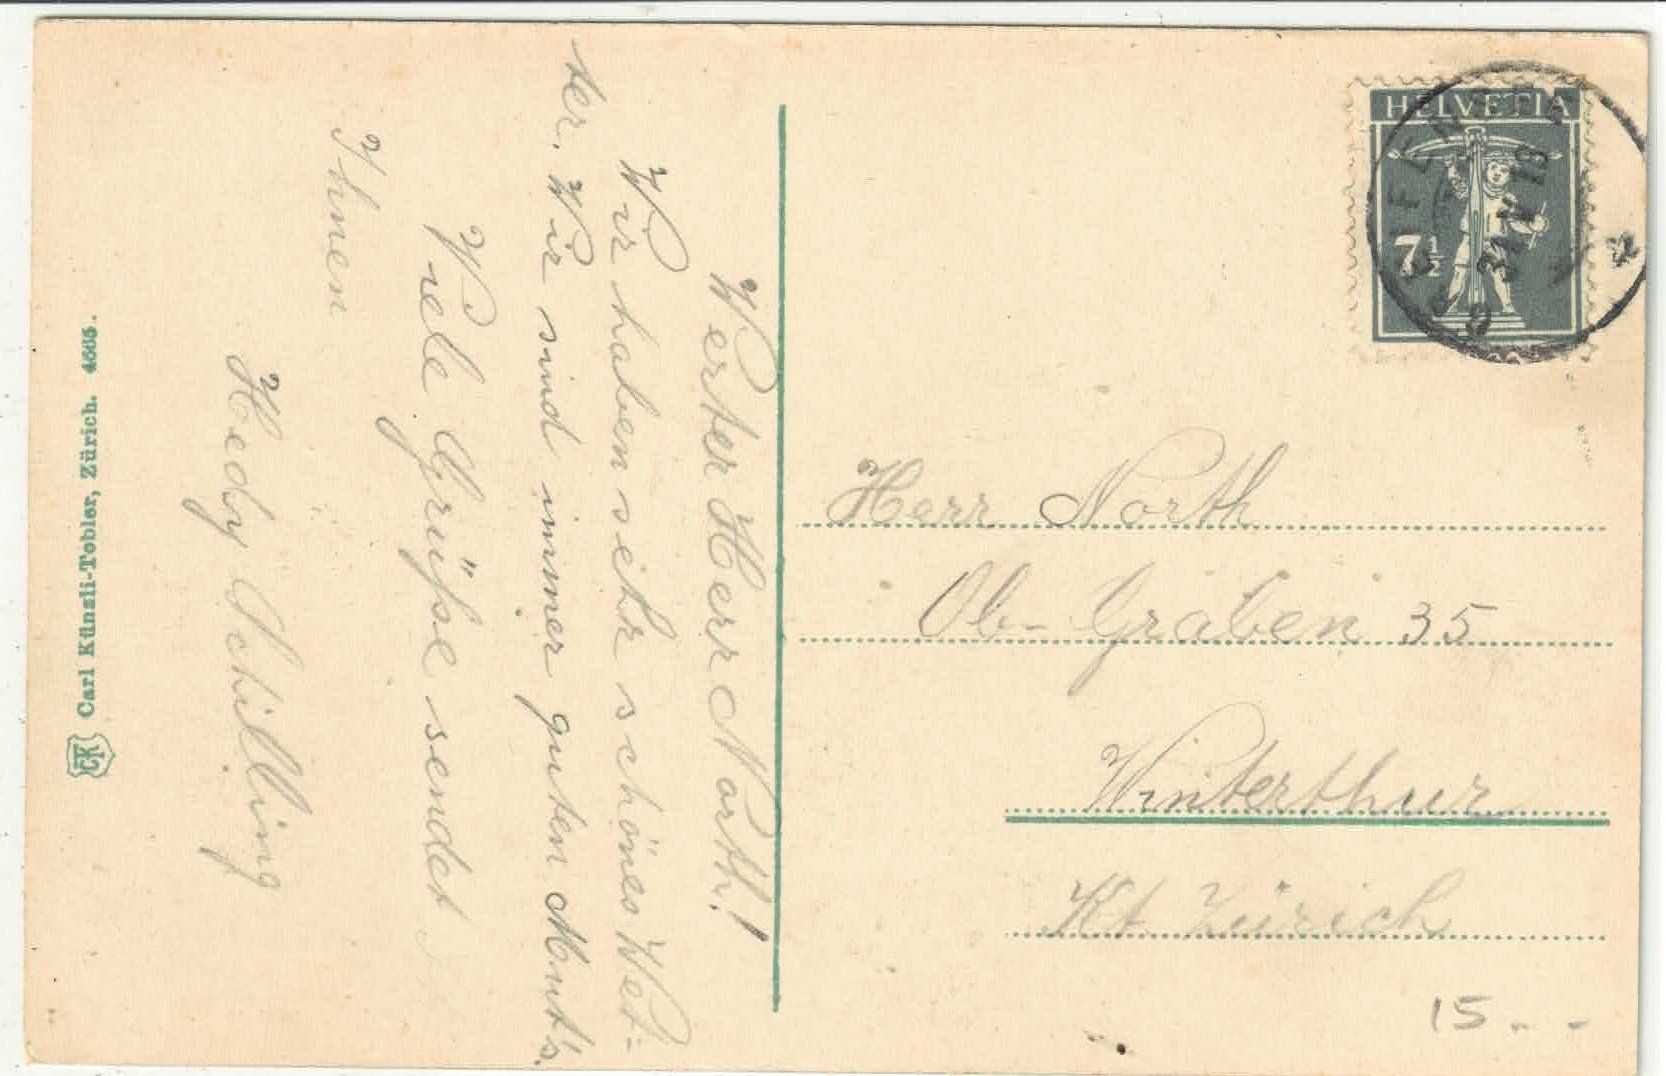 Werter Herr North!
Wir haben sehr schönes Wet-
ter. Wir sind immer guten Mut's.
Viele Grüße sendet
Ihnen
Hedy Schilling
Carl Künzli-Tobler, Zürich. 4665.
CTK
HELVETIA
7½
31. V. 18
Herr North
Ob- Graben 35
Winterthur
Kt Zürich
15.--